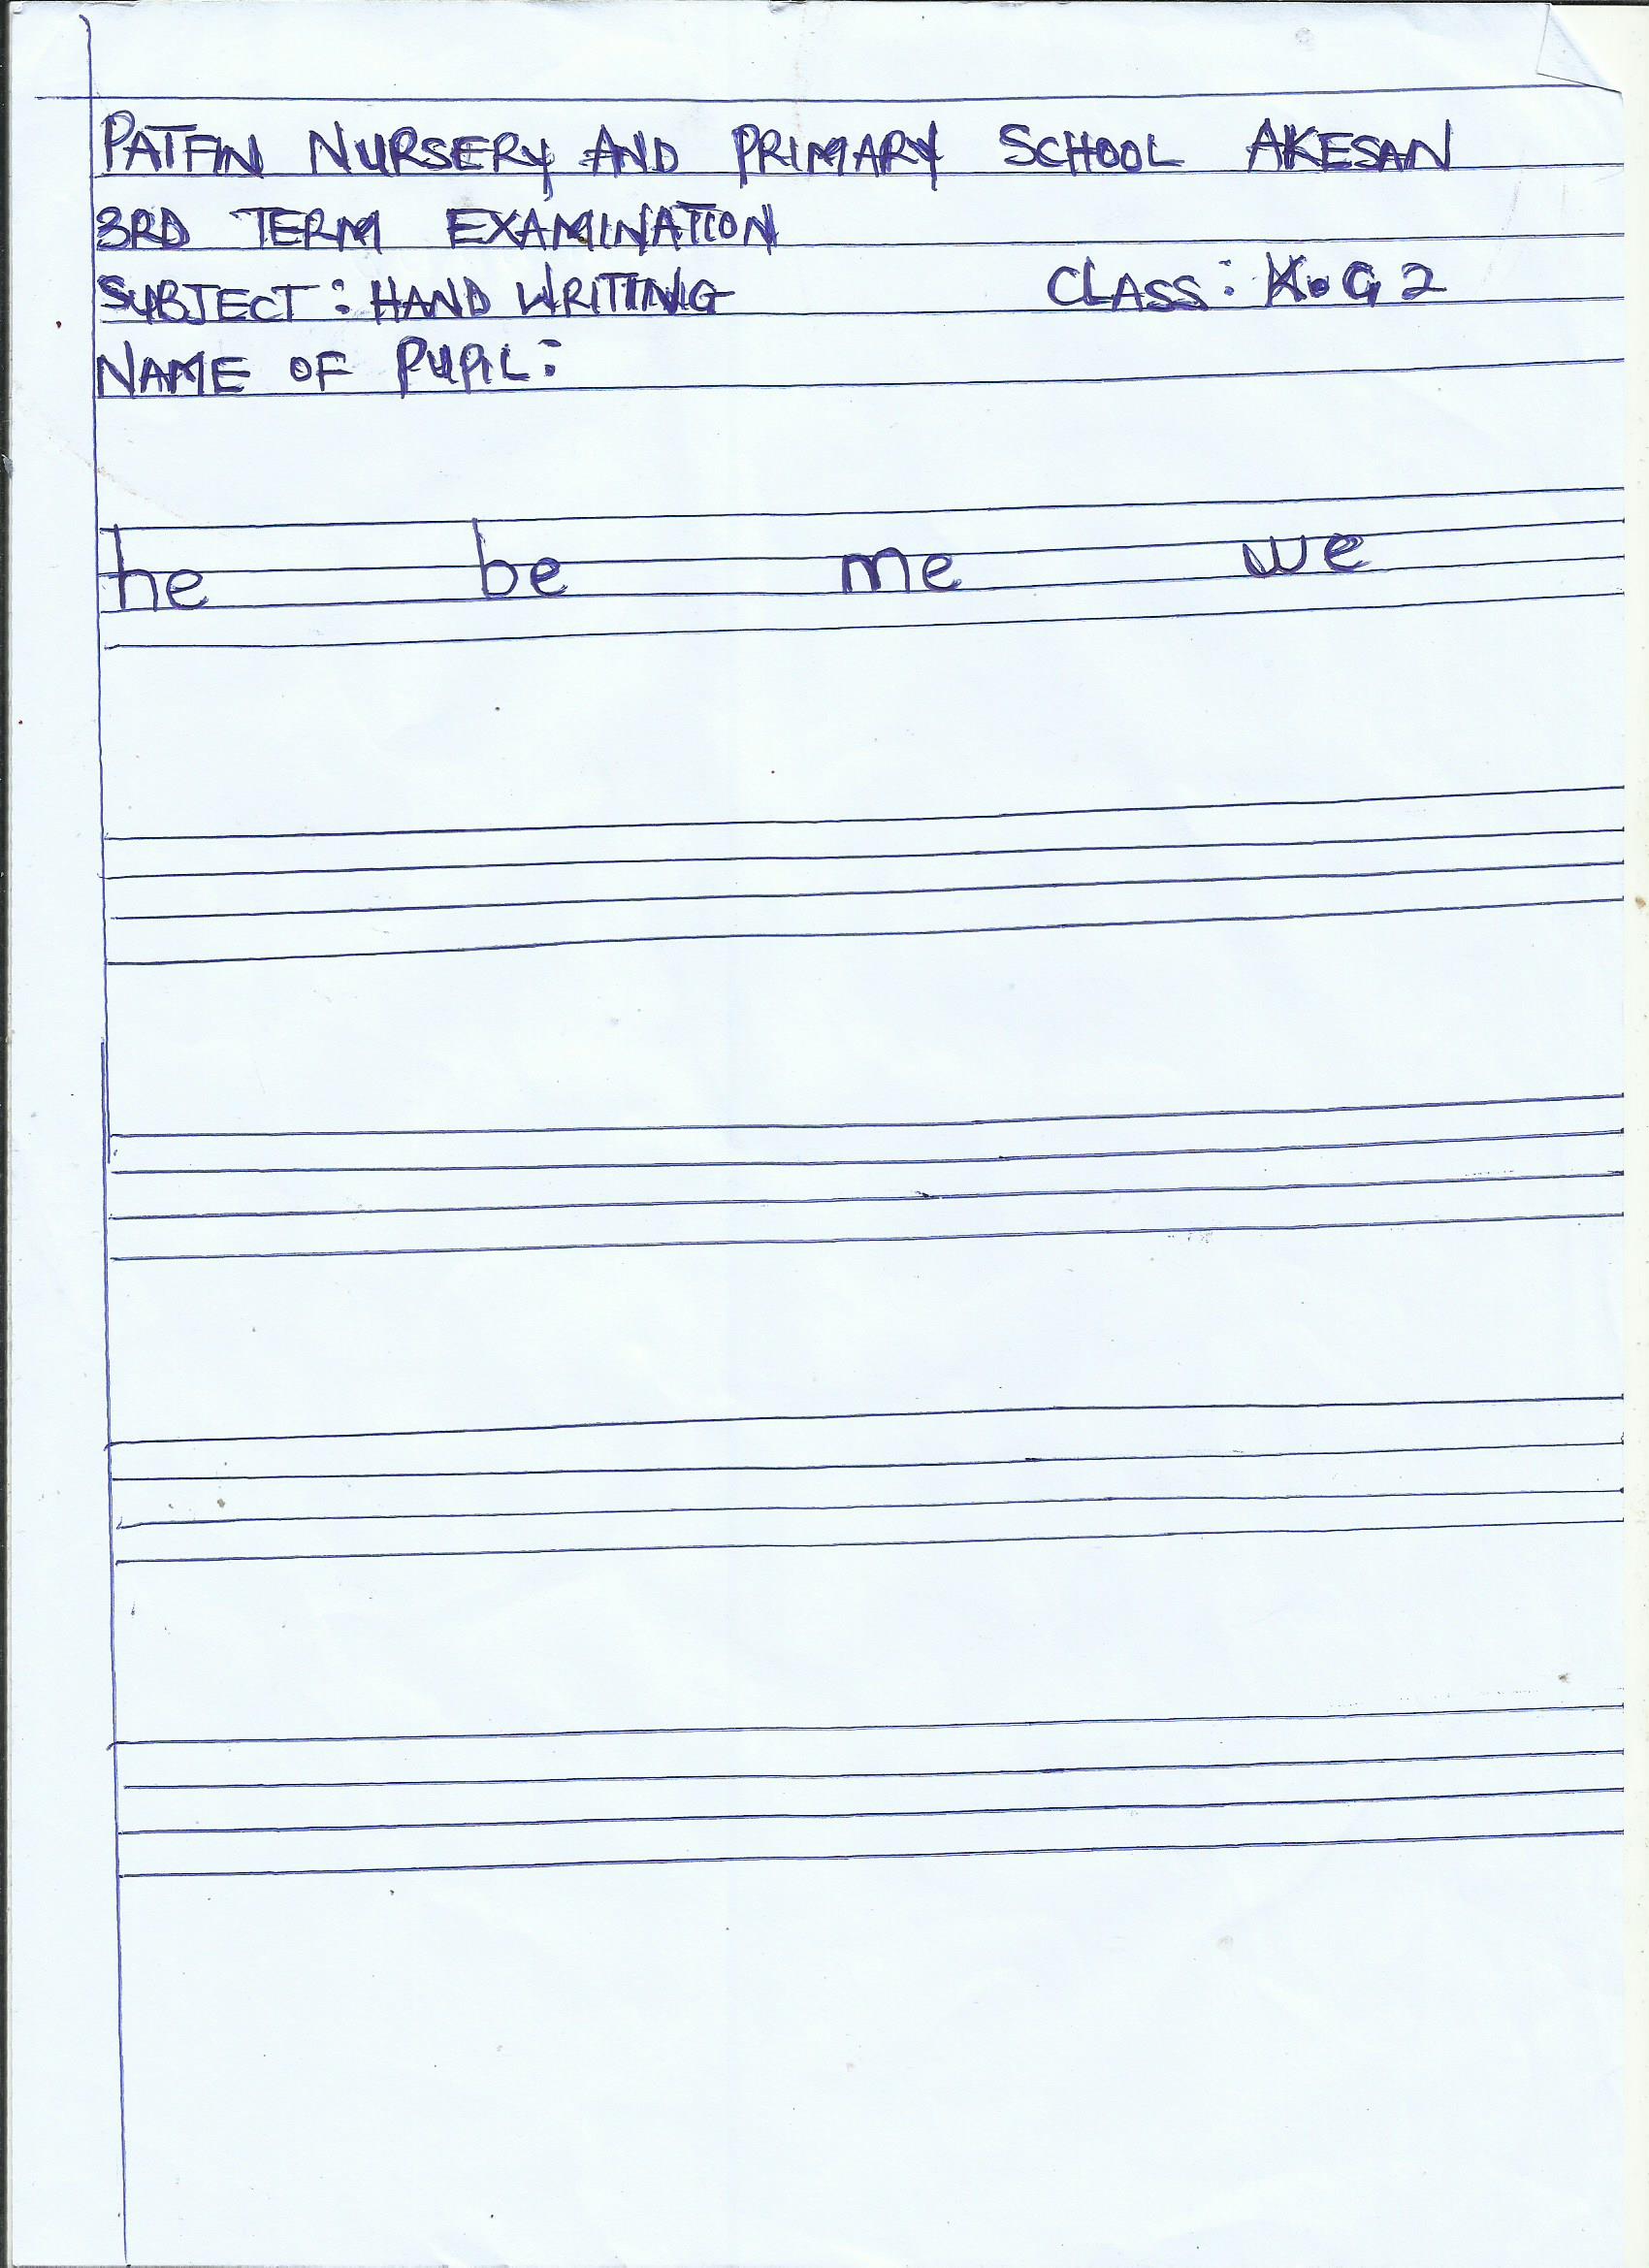 PATFIN NURSERY AND PRIMARY SCHOOL AKESAN
3RD TERM EXAMINATION
SUBJECT: HAND WRITING CLASS: K.G 2
NAME OF PUPIL:
he be me we